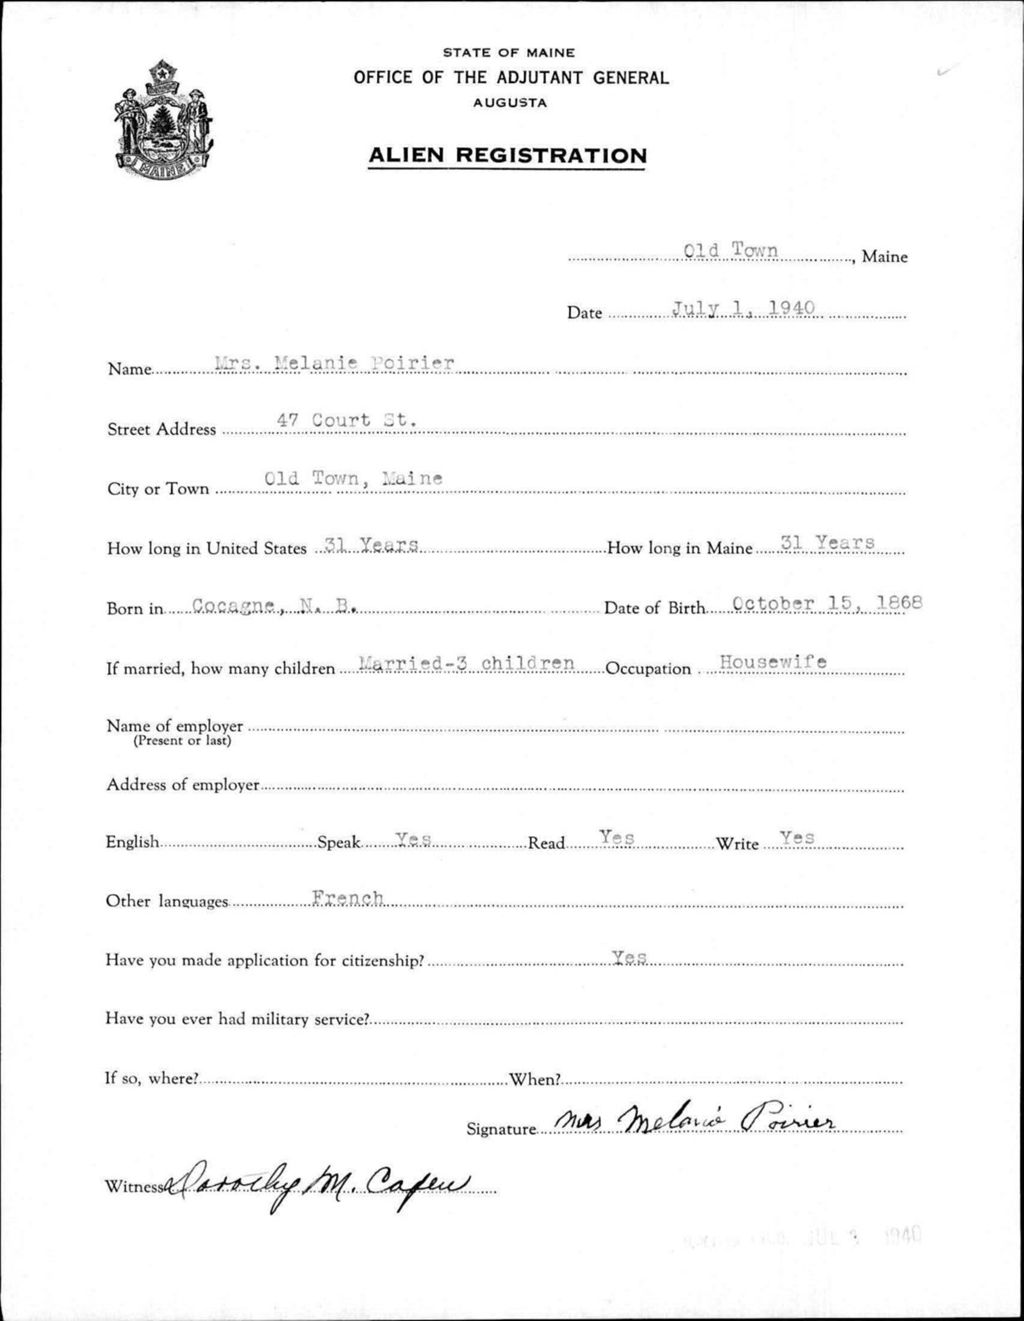 STATE OF MAINE
OFFICE OF THE ADJUTANT GENERAL
AUGUSTA
ALIEN REGISTRATION
MAINE
Old Town, Maine
Date July 1, 1940
Name Mrs. Melanie Poirier
Street Address 47 Court St.
City or Town Old Town, Maine
How long in United States 31 Years How long in Maine 31 Years
Born in Cocagne, N. B. Date of Birth October 15, 1868
If married, how many children Married-3 children Occupation Housewife
Name of employer
(Present or last)
Address of employer
English Speak Yes Read Yes Write Yes
Other languages French
Have you made application for citizenship? Yes
Have you ever had military service?
If so, where? When?
Signature Mrs Melanie Poirier
Witness Dorothy M. Capen
JUL 3 1940